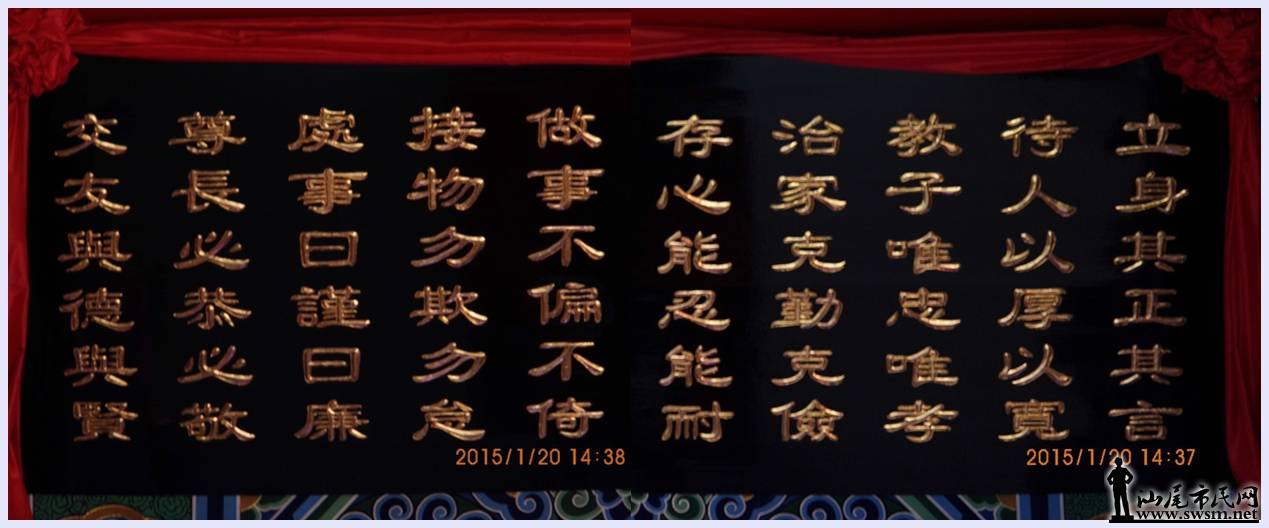 立身其正其言
待人以厚以寬
教子唯忠唯孝
治家克勤克儉
存心能忍能耐
做事不偏不倚
接物勿欺勿怠
處事曰謹曰廉
尊長必恭必敬
交友與德與賢
2015/1/20 14:38
2015/1/20 14:37
汕尾市民网
www.swsm.net